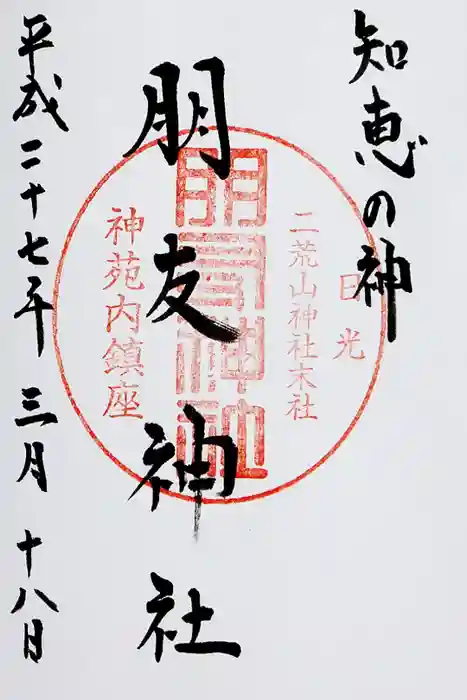 知恵の神
日光
二荒山神社本社
朋友神社
朋友神社
神苑内鎮座
平成二十七年三月十八日